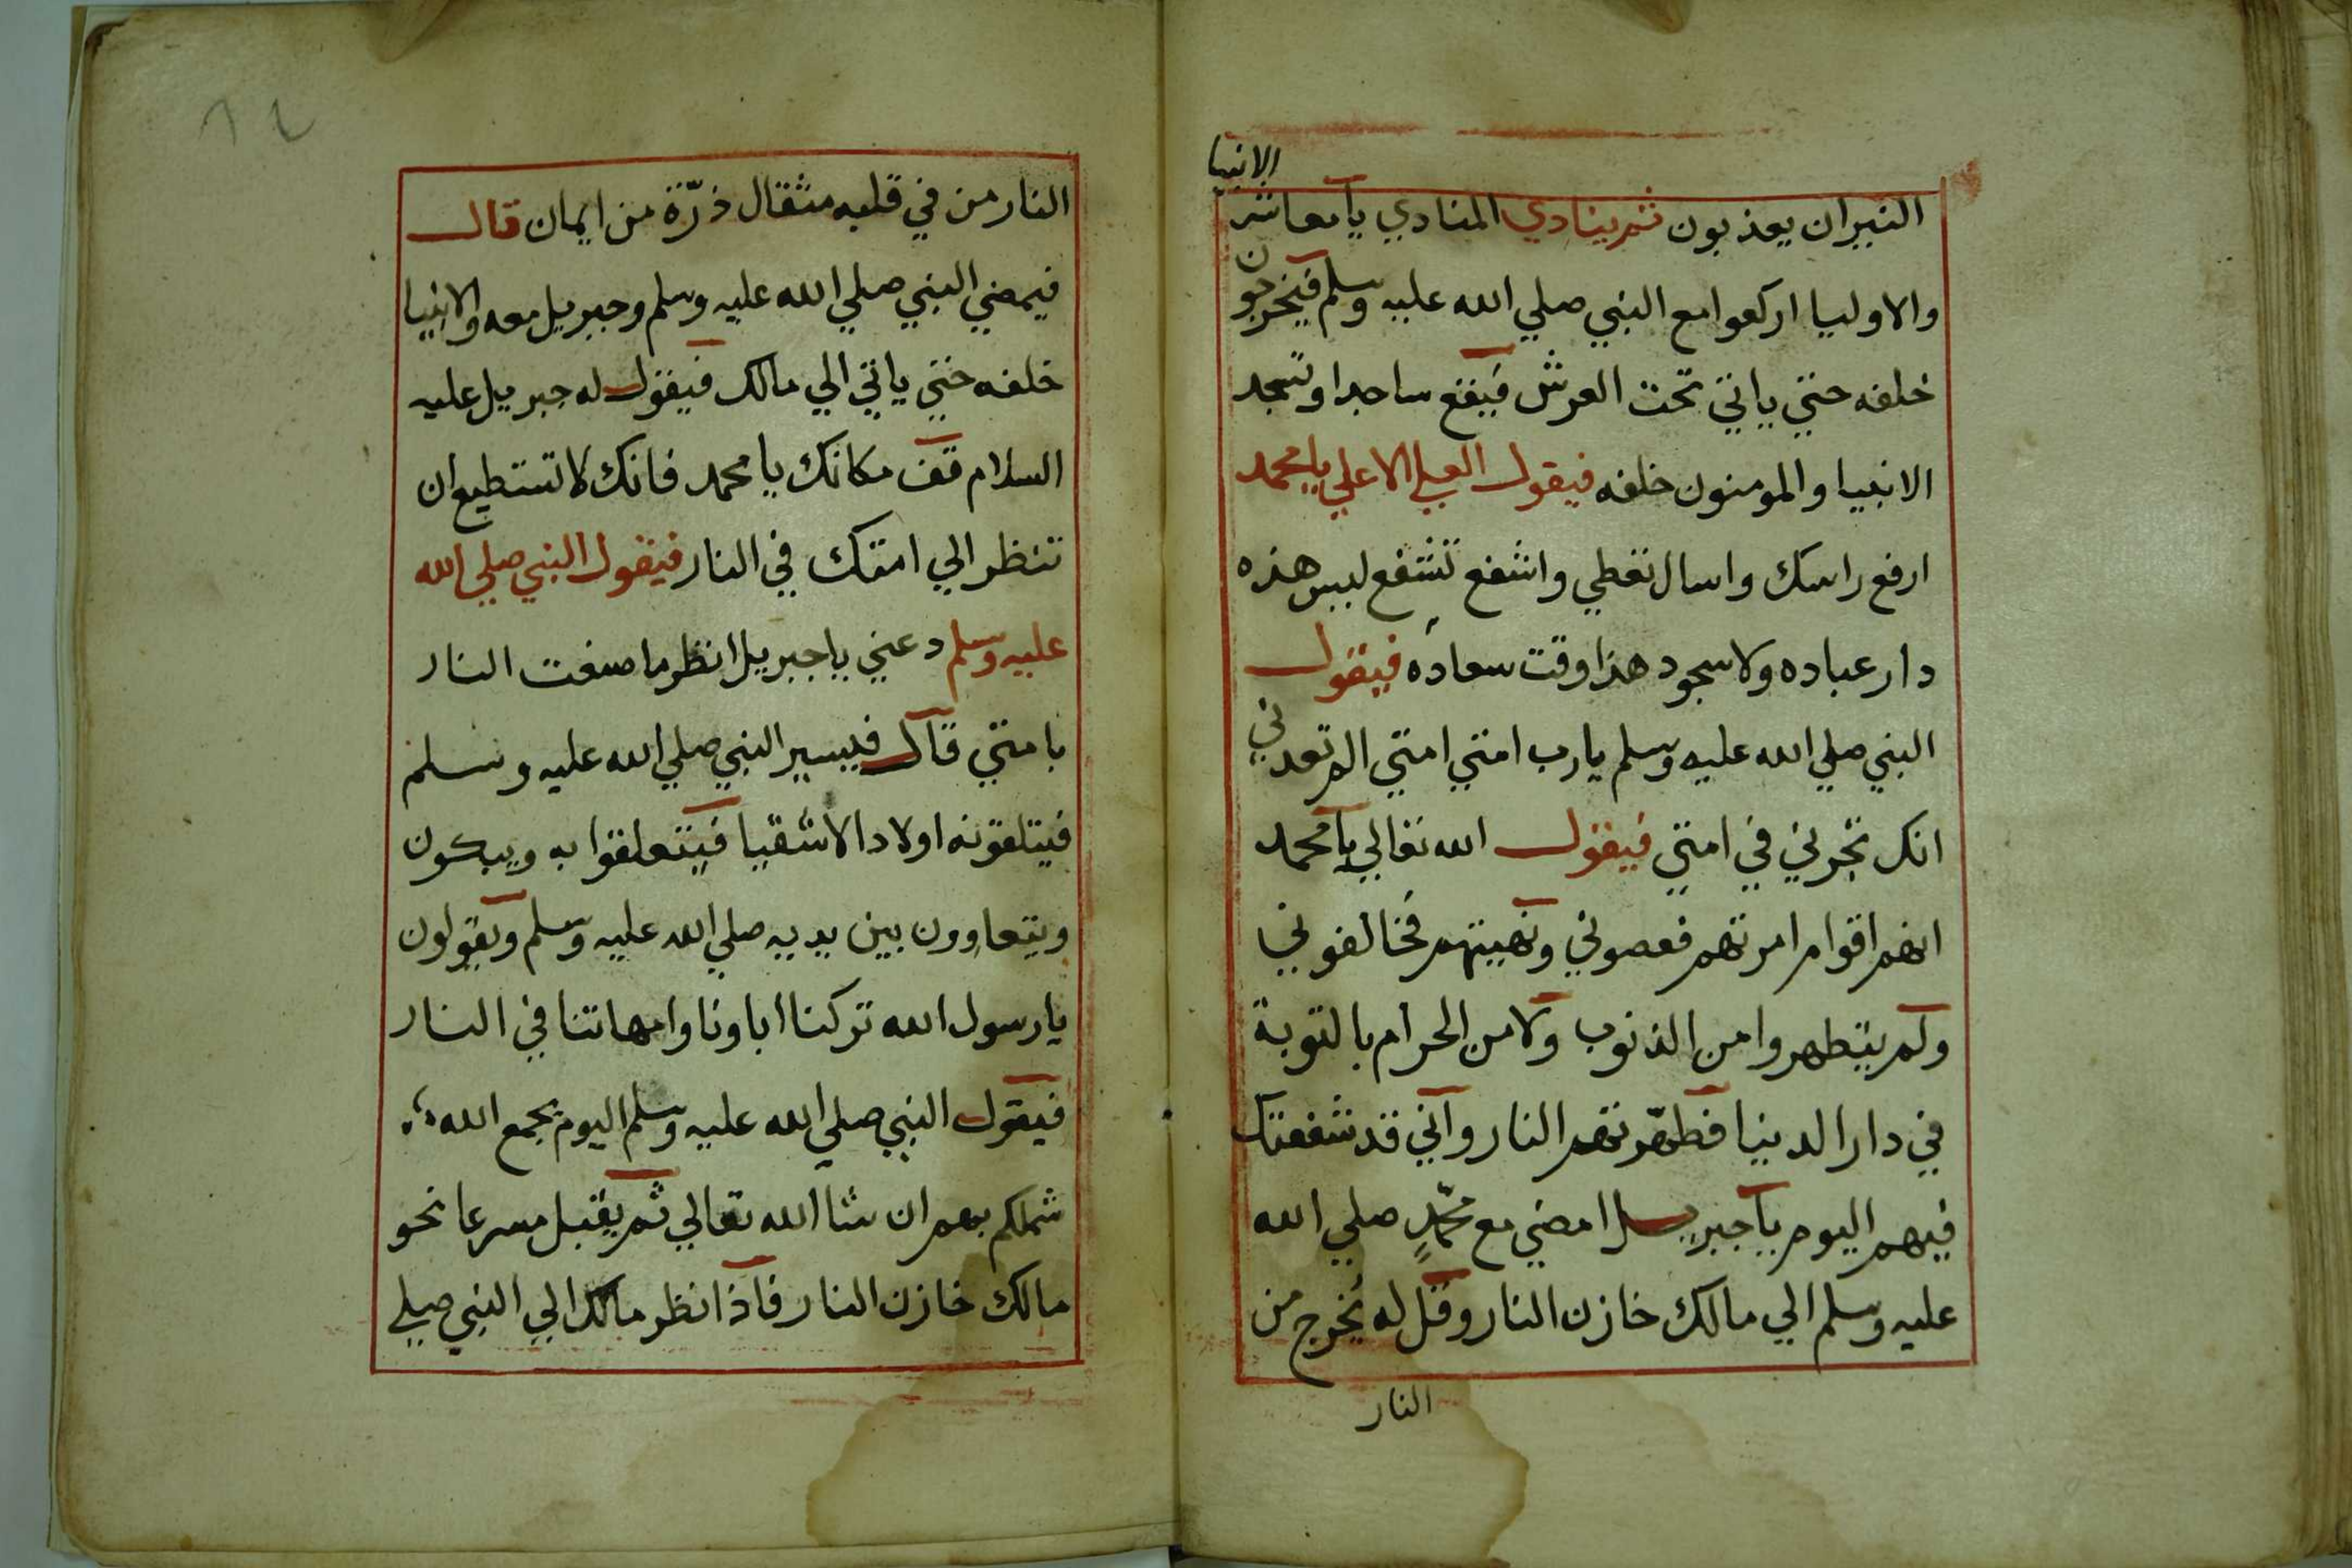 الانبيا
النيران يعذبون ثم ينادي المنادي يا معاشر
والاوليا اركعوا مع النبي صلي الله عليه وسلم فيخرجون
خلفه حتي ياتي تحت العرش فيقع ساجدا وتسجد
الانبيا والمومنون خلفه فيقول العلي الاعلي يا محمد
ارفع راسك واسال تعطي واشفع تشفع ليس هذه
دار عباده ولا سجود هذا وقت سعاده فيقول
النبي صلي الله عليه وسلم يا رب امتي امتي الم تعدني
انك تجرني في امتي فيقول الله تعالي يا محمد
انهم اقوام امرتهم فعصوني ونهيتهم فخالفوني
ولم يتطهروا من الذنوب ولا من الحرام بالتوبة
في دار الدنيا فطهرتهم النار واني قد شفعتك
فيهم اليوم يا جبريل امضي مع محمدٍ صلي الله
عليه وسلم الي مالك خازن النار وقل له يُخرج من
النار
النار من في قلبه مثقال ذرّة من ايمان قال
فيمضي النبي صلي الله عليه وسلم وجبريل معه والانبيا
خلفه حتي ياتي الي مالك فيقول له جبريل عليه
السلام قف مكانك يا محمد فانك لا تستطيع ان
تنظر الي امتك في النار فيقول النبي صلي الله
عليه وسلم دعني يا جبريل انظر ما صنعت النار
بامتي قال فيسير النبي صلي الله عليه وسلم
فيتلقونه اولاد الاشقيا فيتعلقوا به ويبكون
ويتعاوون بين يديه صلي الله عليه وسلم ويقولون
يا رسول الله تركنا اباونا وامهاتنا في النار
فيقول النبي صلي الله عليه وسلم اليوم يجمع الله
شملكم بهم ان شا الله تعالي ثم يقبل مسرعا نحو
مالك خازن النار فاذا نظر مالك الي النبي صلي